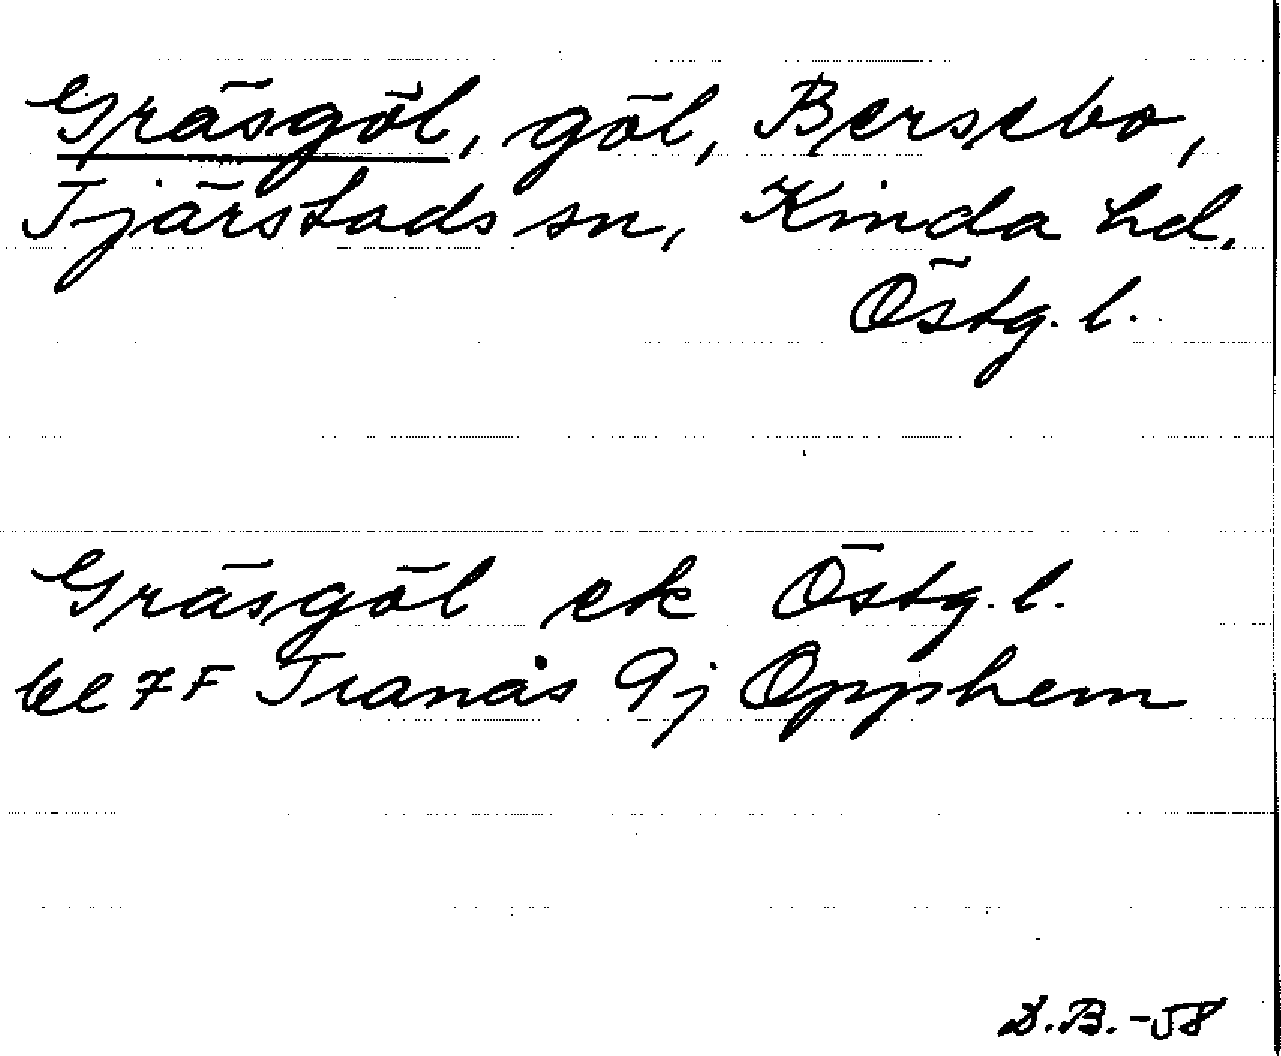 Gräsgöl, göl, Bersebo,
Tjärstads sn, Kinda hd.
Östg. l.
Gräsgöl ek Östg. l.
bl 7F Tranås 9j Opphem
D.B.-58